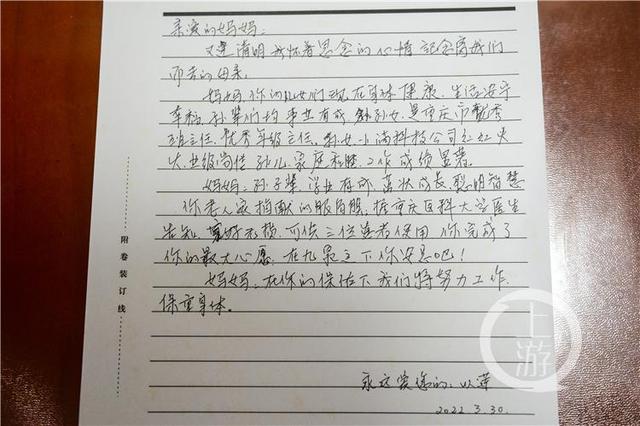 亲爱的妈妈：
又逢清明我怀着思念的心情记念离我们
而去的母亲。
妈妈你的儿女们现在身体健康、生活安宁
幸福。孙辈们均事业有成 孙女是重庆市优秀
班主任、优秀年级主任。外女小 科技公司红红火
火业绩尚佳 孙儿家庭和睦工作成绩显著。
妈妈：孙子辈学业有成 茁壮成长 聪明智慧
你老人家捐献的眼角膜，据重庆医科大学医生
告知 完好无损 可供三位患者使用 你完成了
你的最大心愿，在九泉之下你安息吧！
妈妈：在你的保佑下我们将努力工作
保重身体。
永远爱您的：以莲
2022.3.30.
附卷装订线
上游